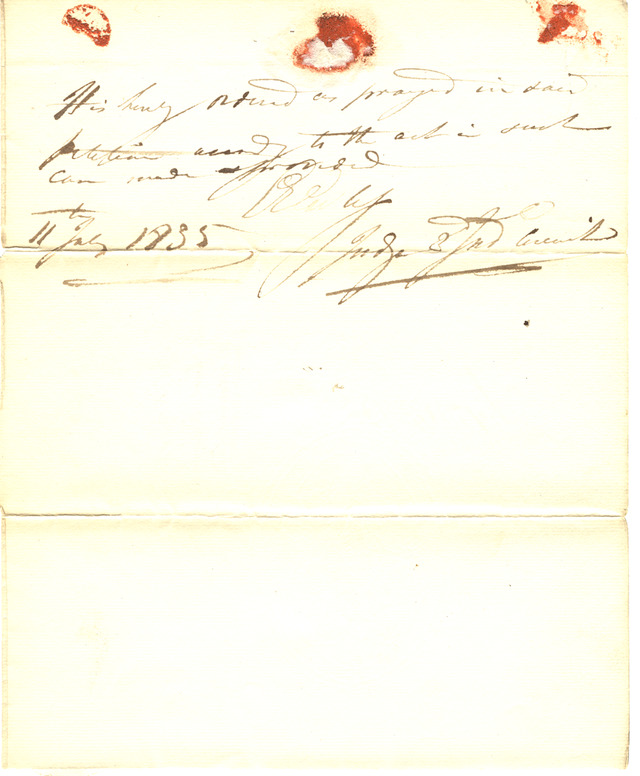 It is hereby ordered as prayed in said
petition accordg to the act in such
case made & provided
11 July 1835
Judge 2 Jud Circuit